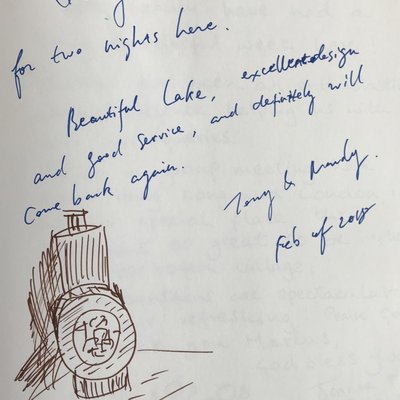 for two nights here.
Beautiful Lake, excellent design
and good service, and definitely will
come back again.
Tony & Mandy.
Feb of